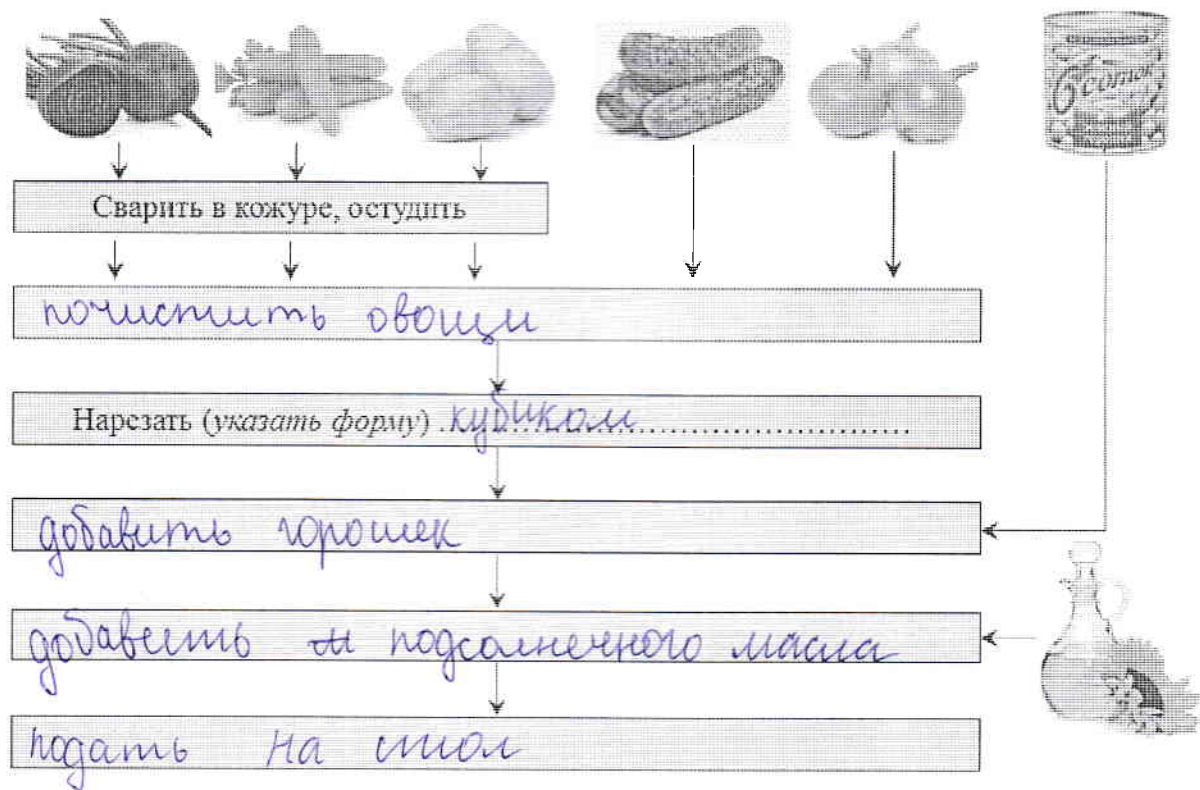 6 соток
Сварить в кожуре, остудить
почистить овощи
Нарезать (указать форму) кубиком
добавить горошек
добавить подсолнечного масла
подать на стол